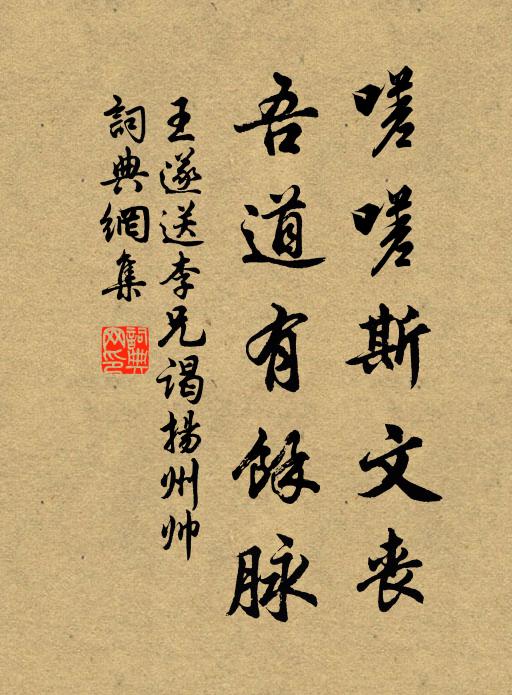 嗟嗟斯文丧
吾道有餘脉
王遂送李兄谒揚州帅
詞典網集
詞典網印